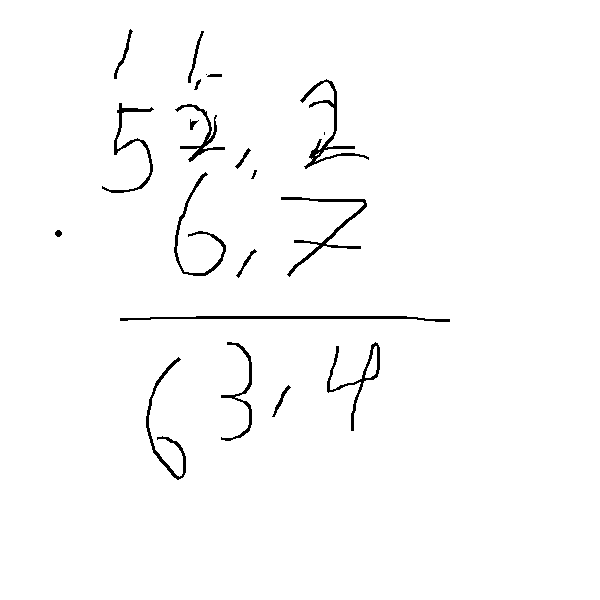 1 1
52,2
. 6,7
63,4